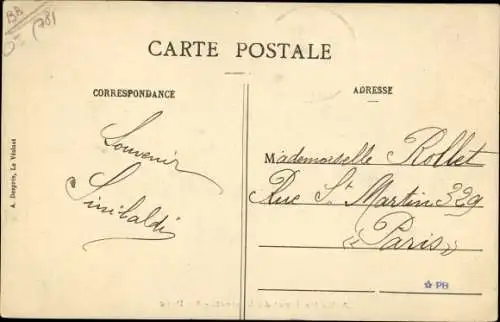 BB
(78)
CARTE POSTALE
CORRESPONDANCE
Souvenir
Sinibaldi
A. Desprès, Le Vésinet
ADRESSE
Mademoiselle Rollet
Rue St Martin 329
« Paris »
☆ PB